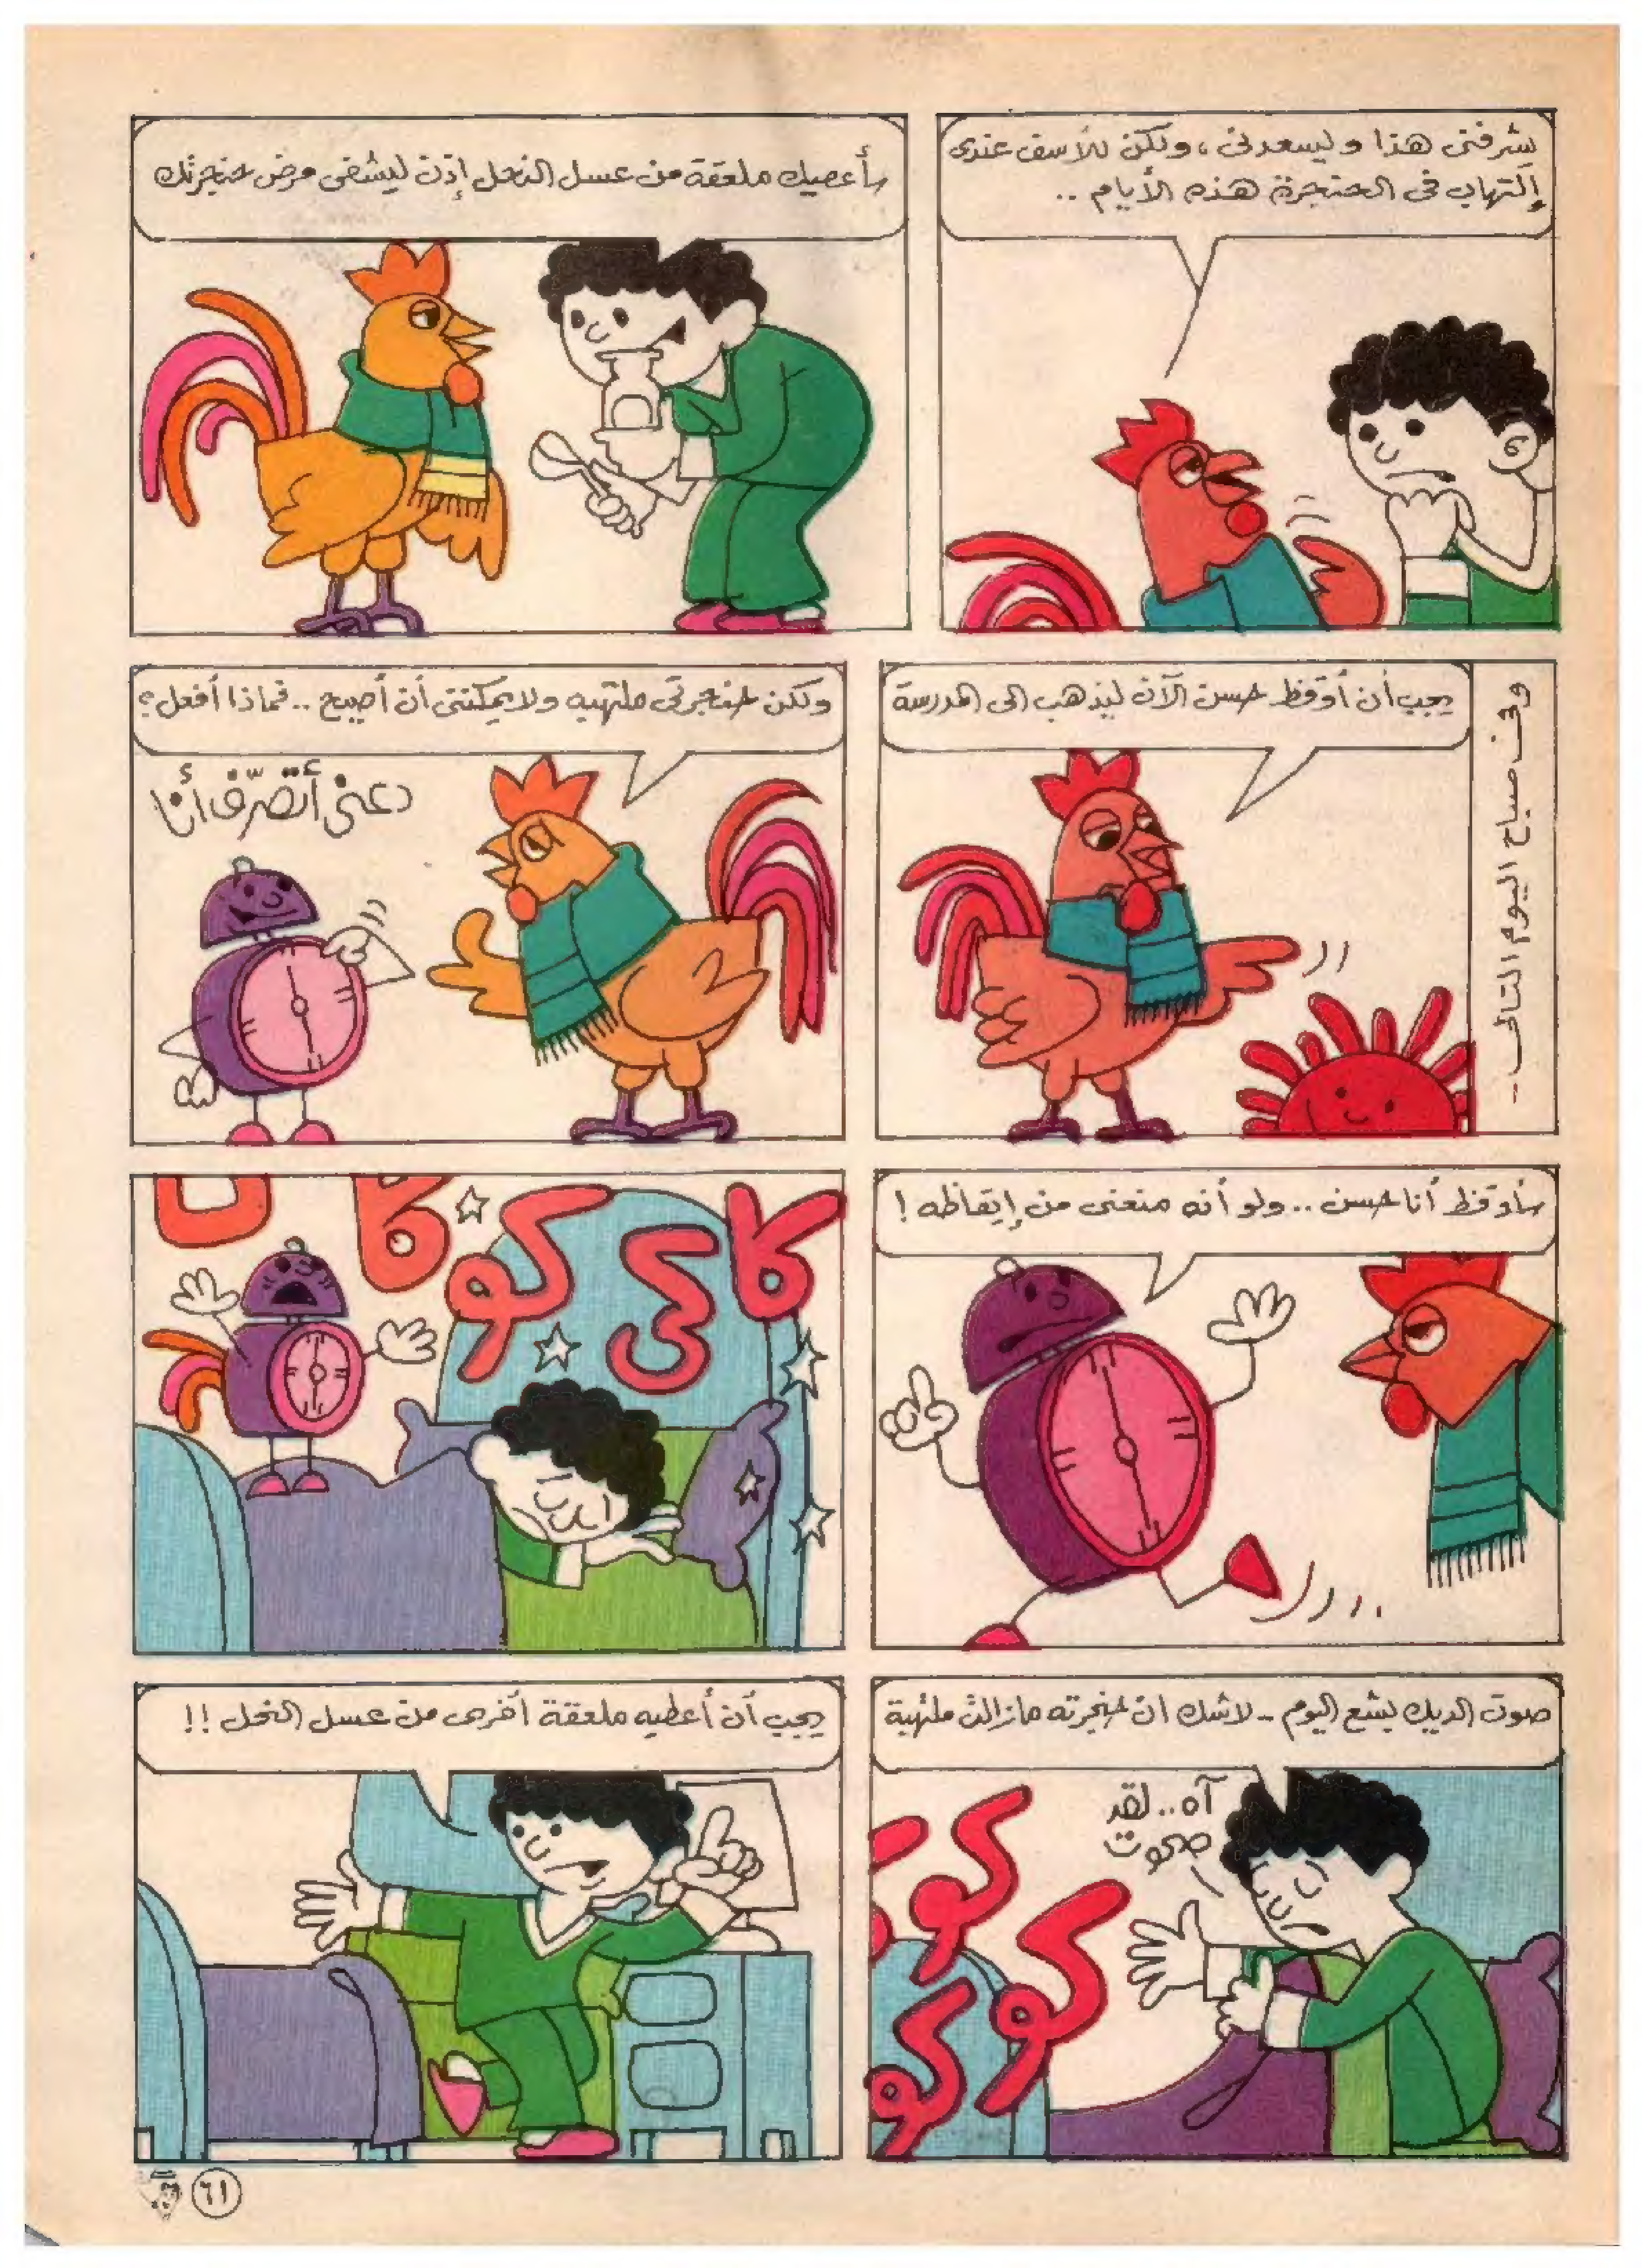 يشرفنى هذا ويسعدنى، ولكن للأسف عندى
إلتهاب فى الحنجرة هذه الأيام ..
سأعطيك ملعقة من عسل النحل إذن ليشفى مرض حنجرتك
وفى صباح اليوم التالى ..
يجب أن أوقظ حسن الآن ليذهب إلى المدرسة
ولكن حنجرتى ملتهبه ولا يمكننى أن أصيح .. فماذا أفعل؟
دعنى أتصرّف أنا
سأوقظ أنا حسن .. ولو أنه منعنى من إيقاظه !
كاكى كو كا
صوت الديك بشع اليوم .. لاشك ان حنجرته مازالت ملتهبة
آه .. لقد
صحوت
كو كو كو
يجب أن أعطيه ملعقة أخرى من عسل النحل !!
٦١